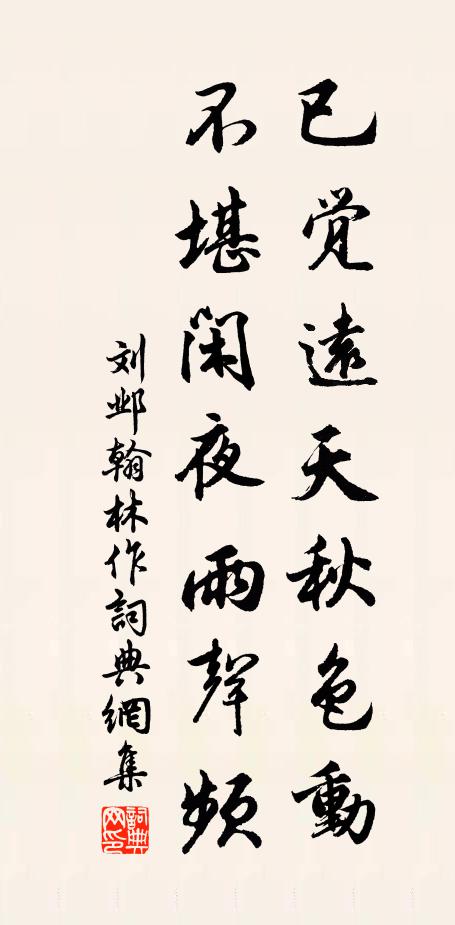 已觉遠天秋色動
不堪閑夜雨聲頻
刘邺翰林作詞典網集
詞典
网印